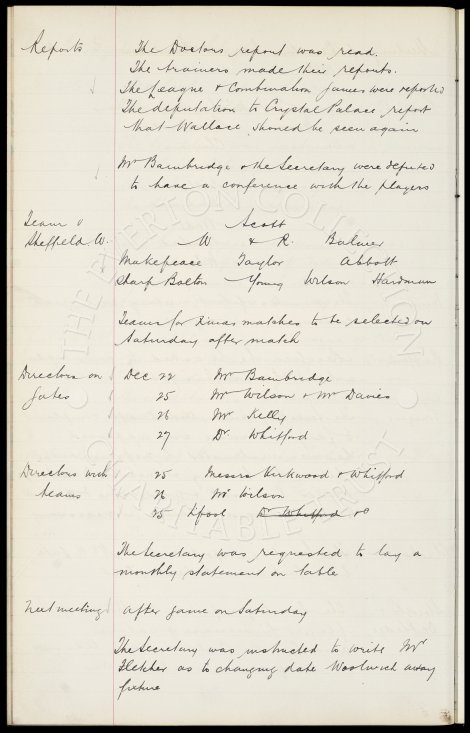 Reports The Doctors report was read.
The trainers made their reports.
The League & Combination games were reported
The deputation to Crystal Palace report
that Wallace should be seen again
Mr Bainbridge & the Secretary were deputed
to have a conference with the players
Team v Scott
Sheffield W. W & R. Balmer
Makepeace Taylor Abbott
Sharp Bolton Young Wilson Hardman
Teams for Xmas matches to be selected on
Saturday after match
Directors on Dec 22 Mr Bainbridge
Gates 25 Mr Wilson & Mr Davies
26 Mr Kelly
27 Dr Whitford
Directors with 25 Messrs Kirkwood & Whitford
teams 26 Mr Wilson
25 Lpool Dr Whitford
The Secretary was requested to lay a
monthly statement on table
Next meeting After game on Saturday
The Secretary was instructed to write Mr
Fletcher as to changing date Woolwich away
fixture
THE EVERTON COLLECTION
CHARITABLE TRUST